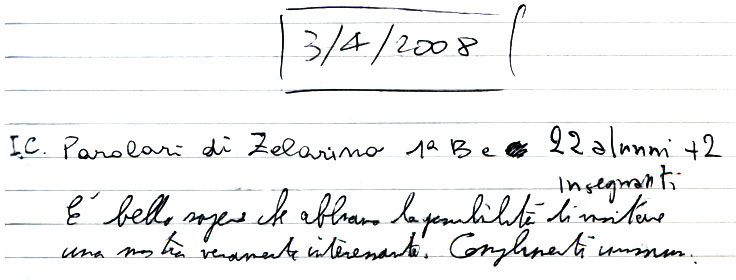 3/4/2008
I.C. Parolari di Zelarino 1ª B e 22 alunni + 2
insegnanti
E' bello sapere che abbiamo la possibilità di visitare
una mostra veramente interessante. Complimenti